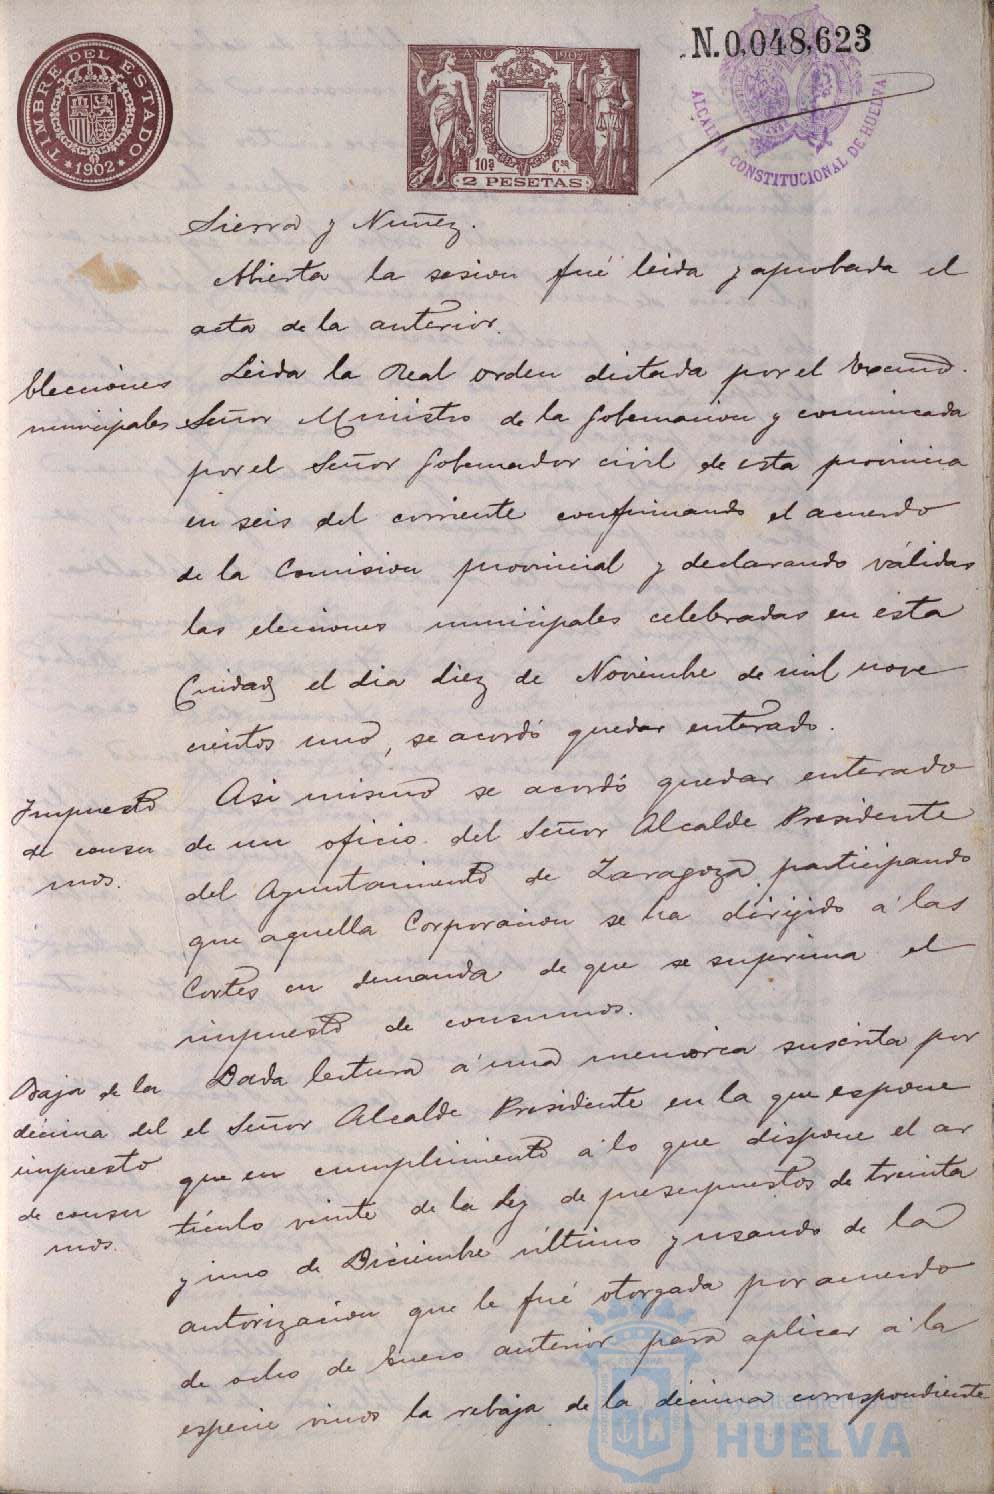 TIMBRE DEL ESTADO
1902
AÑO 1902
10ª Cse
2 PESETAS
N.0,048,623
ALCALDIA CONSTITUCIONAL DE HUELVA
Sierra y Nuñez.
Abierta la sesion fué leida y aprobada el
acta de la anterior.
Elecciones
municipales
Leida la Real orden dictada por el Excmo.
Señor Ministro de la Gobernacion y comunicada
por el Señor Gobernador civil de esta provincia
en seis del corriente confirmando el acuerdo
de la Comision provincial y declarando válidas
las elecciones municipales celebradas en esta
Ciudad el dia diez de Noviembre de mil nove
cientos uno, se acordó quedar enterado.
Impuesto
de consu
mos.
Asi mismo se acordó quedar enterado
de un oficio del Señor Alcalde Presidente
del Ayuntamiento de Zaragoza participando
que aquella Corporacion se ha dirijido á las
Cortes en demanda de que se suprima el
impuesto de consumos.
Baja de la
décima del
impuesto
de consu
mos.
Dada lectura á una memoria suscrita por
el Señor Alcalde Presidente en la que espone
que en cumplimiento á lo que dispone el ar
tículo veinte de la Ley de presupuestos de treinta
y uno de Diciembre último y usando de la
autorizacion que le fué otorgada por acuerdo
de ocho de Enero anterior para aplicar á la
especie vinos la rebaja de la décima correspondiente
Ayuntamiento de
HUELVA